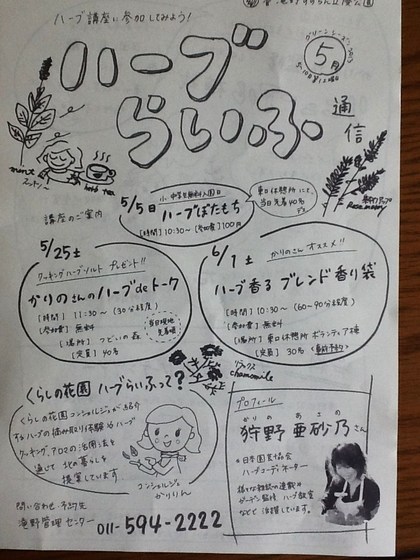 ハーブ講座に参加してみよう!
5月
ハーブ
らいふ
通信
mint
herb tea
Rosemary
講座のご案内
5/5日
小・中学生無料入園日
ハーブぼたもち
[時間] 10:30~ [参加費] 100円
東口休憩所にて
当日先着40名
5/25土
クッキングハーブソルト プレゼント!!
かりのさんのハーブdeトーク
[時間] 11:30~ (30分程度)
[参加費] 無料
[場所] つどいの森
[定員] 40名
当日現地
先着順
6/1土
かりのさん オススメ!!
ハーブ香る ブレンド香り袋
[時間] 10:30~ (60~90分程度)
[参加費] 無料
[場所] 東口休憩所 ボランティア棟
[定員] 30名
リラックス
chamomile
くらしの花園 ハーブらいふって?
くらしの花園 コンシェルジュが紹介
するハーブの摘み取り体験や ハーブ
クッキング、アロマの活用法を
通じて 北の暮らしを
提案しています。
コンシェルジュ
かりりん
プロフィール
かりの あさの
狩野 亜砂乃さん
日本園芸協会
ハーブコーディネーター
様々な雑誌の連載や
ガーデン監修 ハーブ教室
などで活躍しています。
問い合わせ・予約先
滝野管理センター 011-594-2222